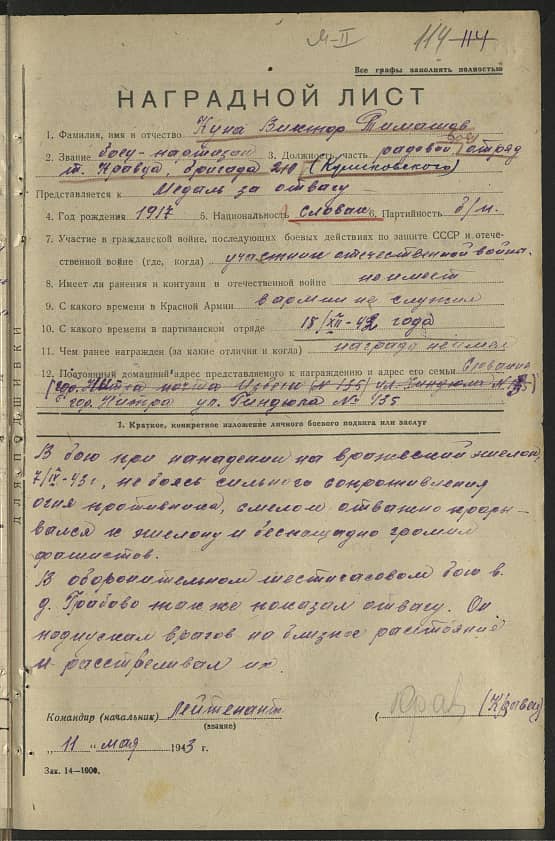 М-II 114 114
Все графы заполнять полностью
НАГРАДНОЙ ЛИСТ
1. Фамилия, имя и отчество Куна Виктор Тимашов
2. Звание боец-партизан 3. Должность, часть радовой отряд
т. Кравца, бригада 210 (Куликовского)
Представляется к Медаль за отвагу
4. Год рождения 1917 5. Национальность Словак 6. Партийность б/п.
7. Участие в гражданской войне, последующих боевых действиях по защите СССР и отече-
ственной войне (где, когда) участник отечественной война.
8. Имеет ли ранения и контузии в отечественной войне не имеет
9. С какого времени в Красной Армии в армии не служил
10. С какого времени в партизанском отряде 15/XII-42 года
11. Чем ранее награжден (за какие отличия и когда) награда не имел
12. Постоянный домашний адрес представляемого к награждению и адрес его семьи Словакия
гор. Нитра ул. № 435
I. Краткое, конкретное изложение личного боевого подвига или заслуг
В бою при нападении на вражеский эшелон,
7/IV-43 г., не боясь сильного сопроживления
огня противника, смелом отважно проры-
вался к эшелону и беспощадно громил
фашистов.
В оборонительном шестичасовом бою в
д. Грабово так же показал отвагу. Он
подпускал врагов на близкое расстояние
и расстреливал их.
Командир (начальник) Лейтенант (Кравец)
(звание)
„11" мая 1943 г.
Зак. 14—1000.
ДЛЯ ПОДШИВКИ